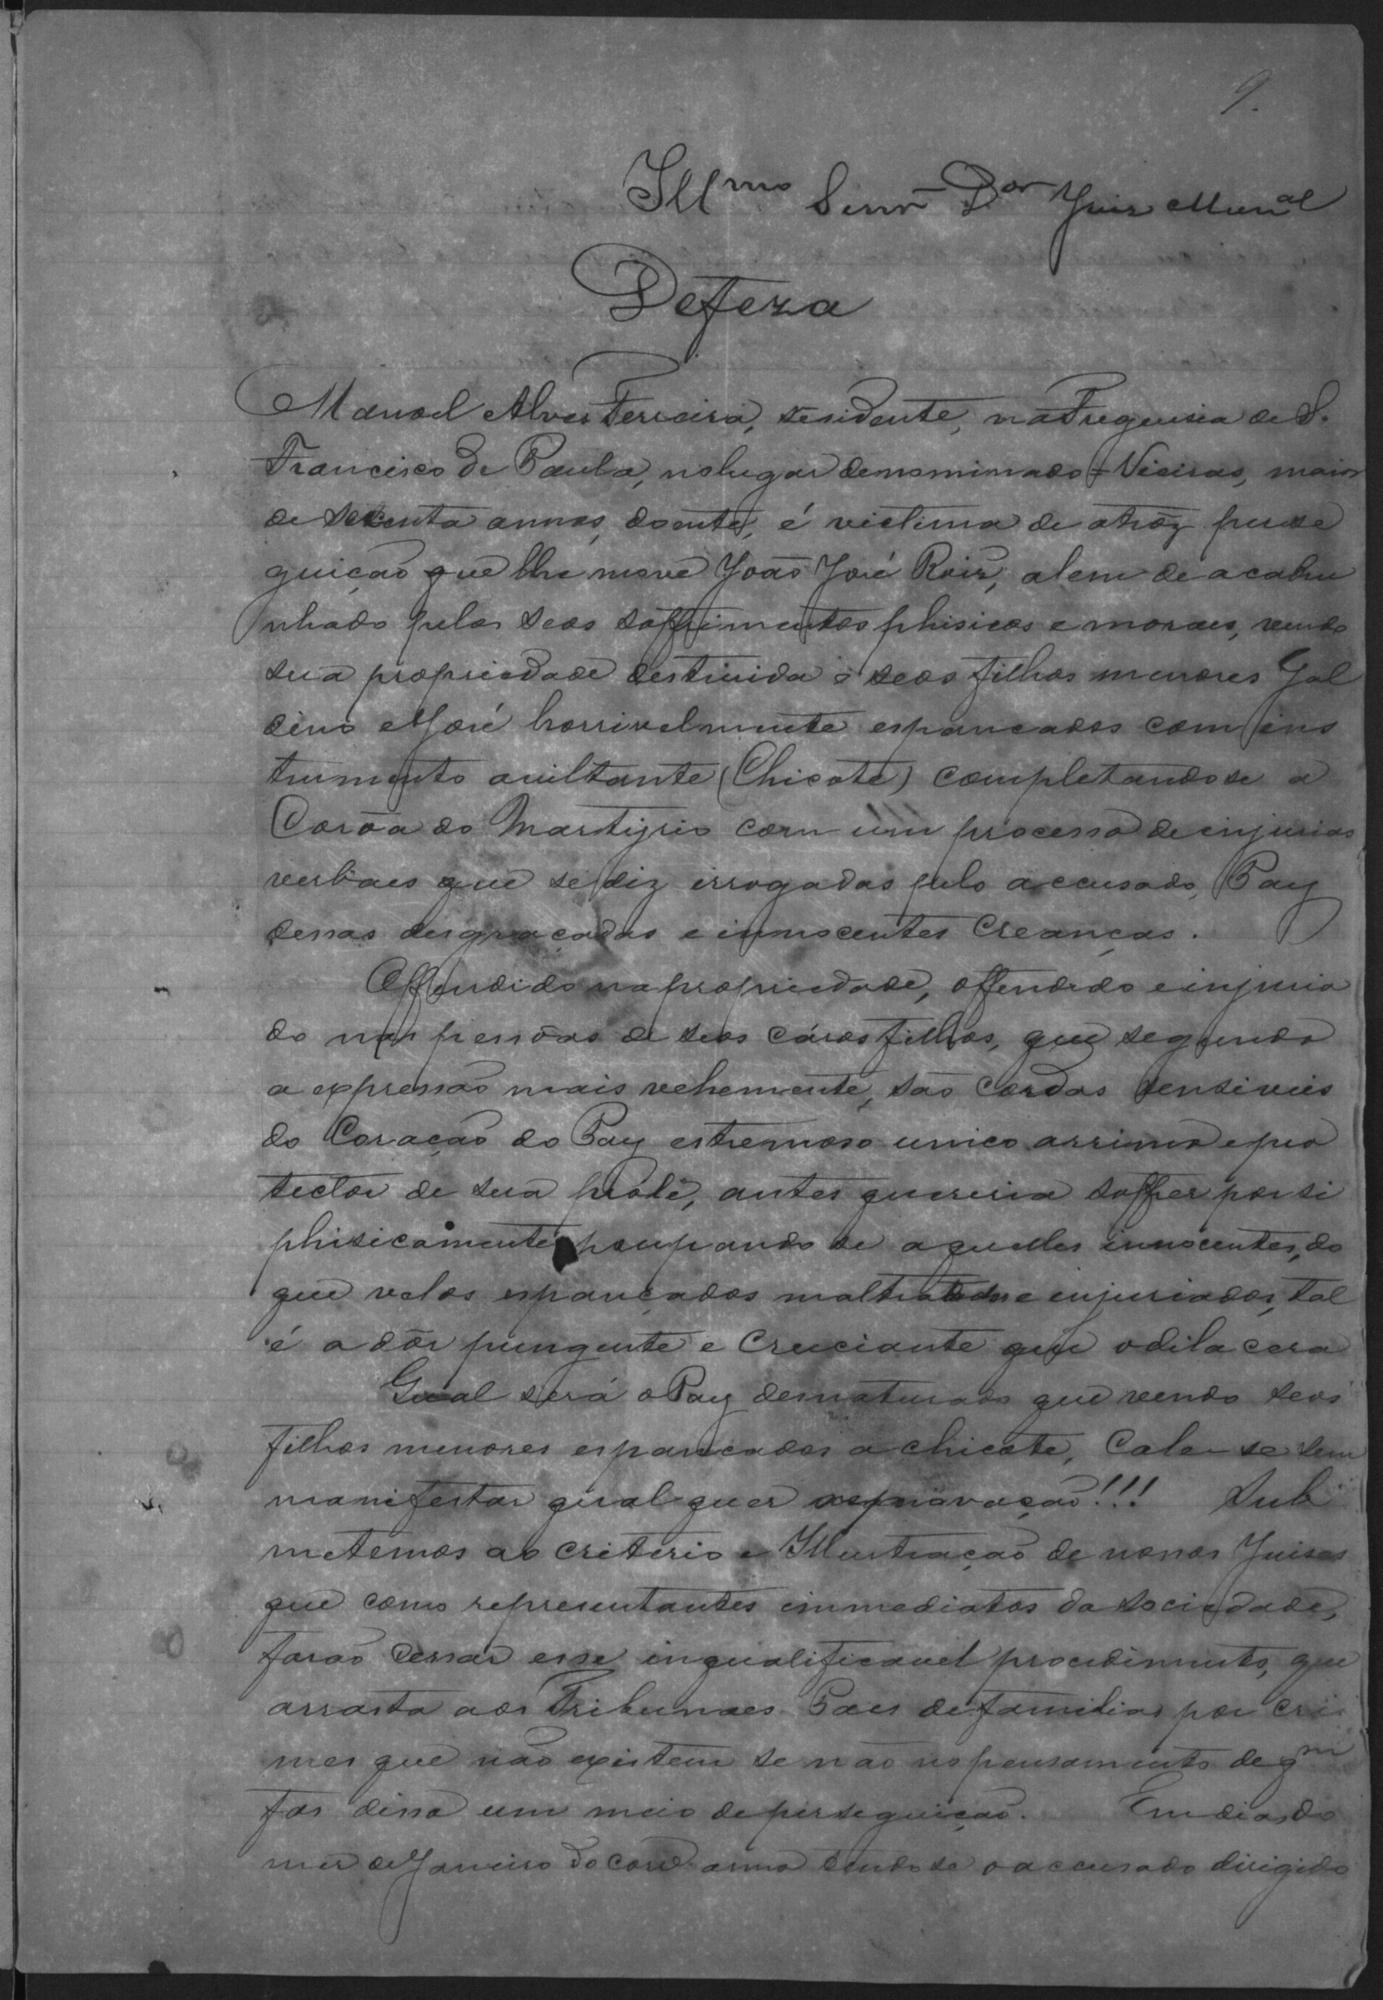 9.
Illmo Senr Dor Juiz Munal
Defeza
Manoel Alves Ferreira, residente, na Freguesia de S.
Francisco de Paula, no lugar denominado = Vieiras, maior
de secenta annos, doente, é victima de atróz perse
guição que lhe move João José Roiz, alem de acabru
nhado pelos seos soffrimentos phisicos e moraes, vendo
sua propriedade destruida e seos filhos menores Gal
dino e José horrivelmente espancados com ins
trumento aviltante (Chicote) completando se a
Corôa do Martyrio com um processo de injurias
verbaes que se diz irrogadas pelo accusado, Pay
dessas desgraçadas e innocentes Creanças.
Offendido na propriedade, offendido e injuria
do nas pessôas de seos cáros filhos, que segundo
a expressão mais vehemente, são Cordas sensiveis
do Coração do Pay estremoso unico arrimo e pro
tector de sua prole, antes quereria soffrer por si
phisicamente poupando se aquelles innocentes, do
que velos espancados maltratados e injuriados, tal
é a dôr pungente e Cruciante que o dilacera
Qual será o Pay desnaturado que vendo seos
filhos menores espancados a chicote, Cale-se sem
manifestar qualquer reprovação!!! Sub
metemos ao criterio e Illustração de nossos Juises
que como representantes immediatos da sociedade,
farão Cessar esse inqualificavel procedimento, que
arrasta aos Tribunaes Paes de familias por cri
mes que não existem se não no pensamento de qm
fas disso um meio de perseguição. Em dias do
mes de Janeiro do corre anno tendo se o accusado dirigido